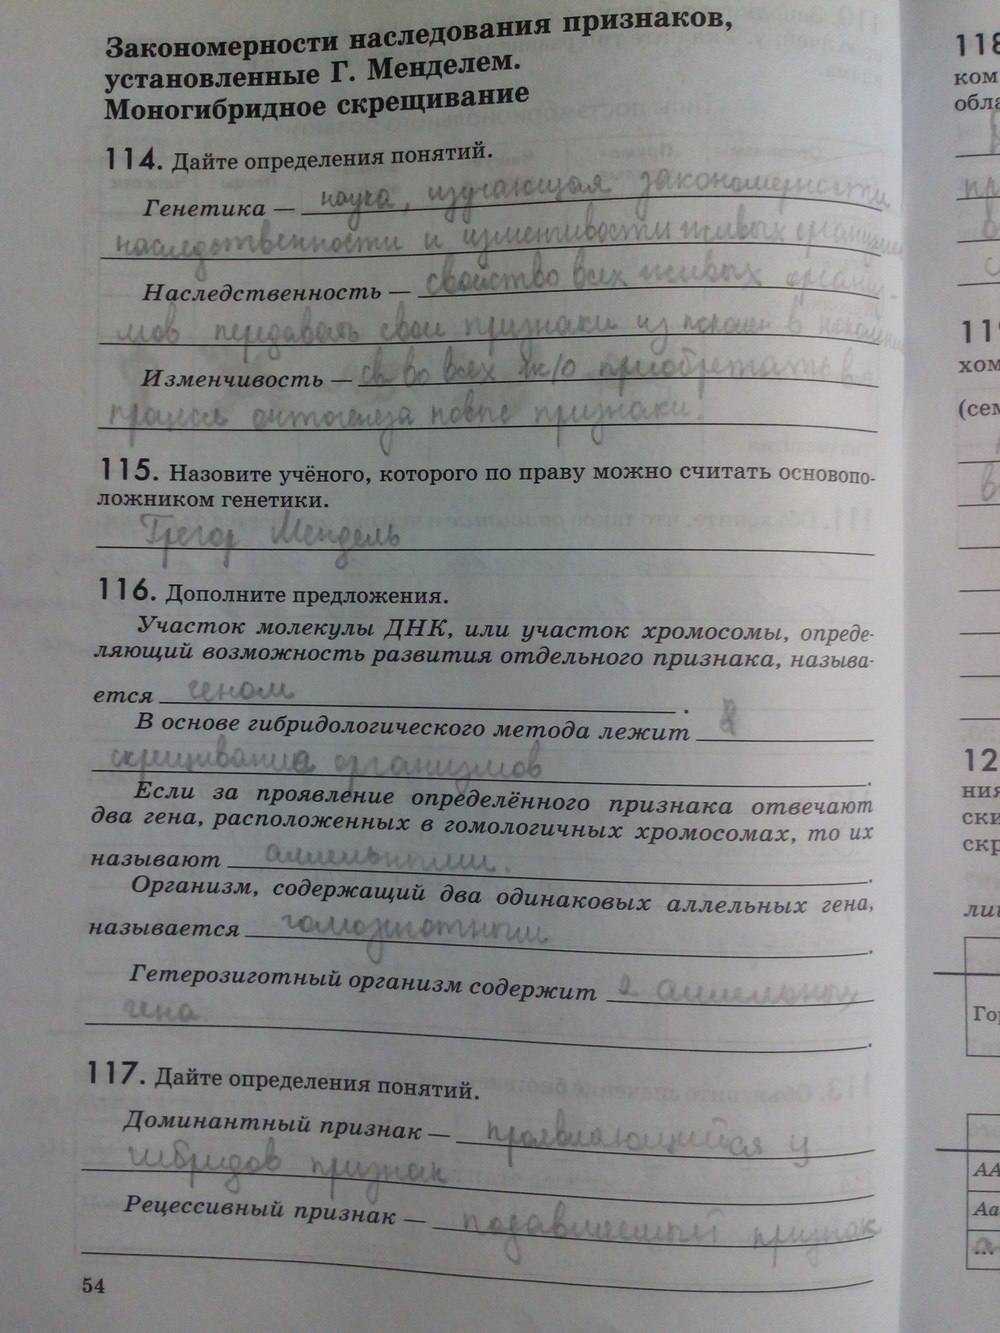 Закономерности наследования признаков,
установленные Г. Менделем.
Моногибридное скрещивание
114. Дайте определения понятий.
Генетика — наука, изучающая закономерности
наследственности и изменчивости живых
Наследственность — свойство всех живых организ-
мов передавать свои признаки из в
Изменчивость — св во всех ж/о приобретать в
процессе онтогенеза новые признаки.
115. Назовите учёного, которого по праву можно считать основопо-
ложником генетики.
Грегор Мендель
116. Дополните предложения.
Участок молекулы ДНК, или участок хромосомы, опреде-
ляющий возможность развития отдельного признака, называ-
ется геном .
В основе гибридологического метода лежит
скрещивание организмов .
Если за проявление определённого признака отвечают
два гена, расположенных в гомологичных хромосомах, то их
называют аллельными. .
Организм, содержащий два одинаковых аллельных гена,
называется гомозиготным .
Гетерозиготный организм содержит 2 аллельных
гена .
117. Дайте определения понятий.
Доминантный признак — проявляющийся у
гибридов признак
Рецессивный признак — признак
54
118
ком
обла
хом
(сем
12
ния
ски
скр
Гор
АА
Аа